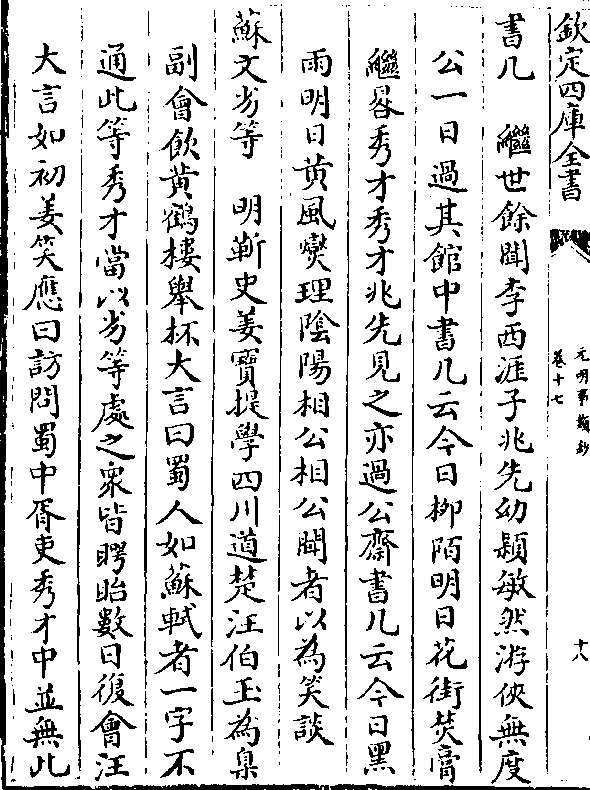 欽定四庫全書
元明事類鈔
卷十七
十八
書几　繼世餘聞李西涯子兆先幼穎敏然游俠無度
公一日過其館中書几云今日柳陌明日花街焚膏
繼晷秀才秀才兆先見之亦過公齋書几云今日黑
雨明日黄風燮理陰陽相公相公聞者以為笑談
蘇文劣等　明蕲史姜寶提學四川道楚汪伯玉為臬
副會飲黄鶴樓舉杯大言曰蜀人如蘇軾者一字不
通此等秀才當以劣等處之衆皆睜眙數日復會汪
大言如初姜笑應曰訪問蜀中胥吏秀才中並無此